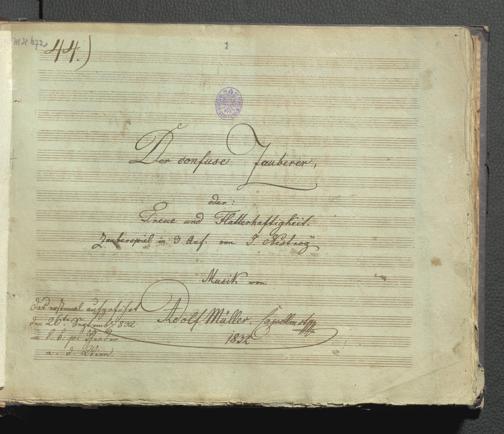 44.)
Der confuse Zauberer,
oder:
Treue und Flatterhaftigkeit.
Zauberspiel in 3 Auf. von J. Nestroy
Musik von
Adolf Müller. Capellmstr
1832
Das erstemal aufgeführt
den 26ten September 1832
a. d. Wien.